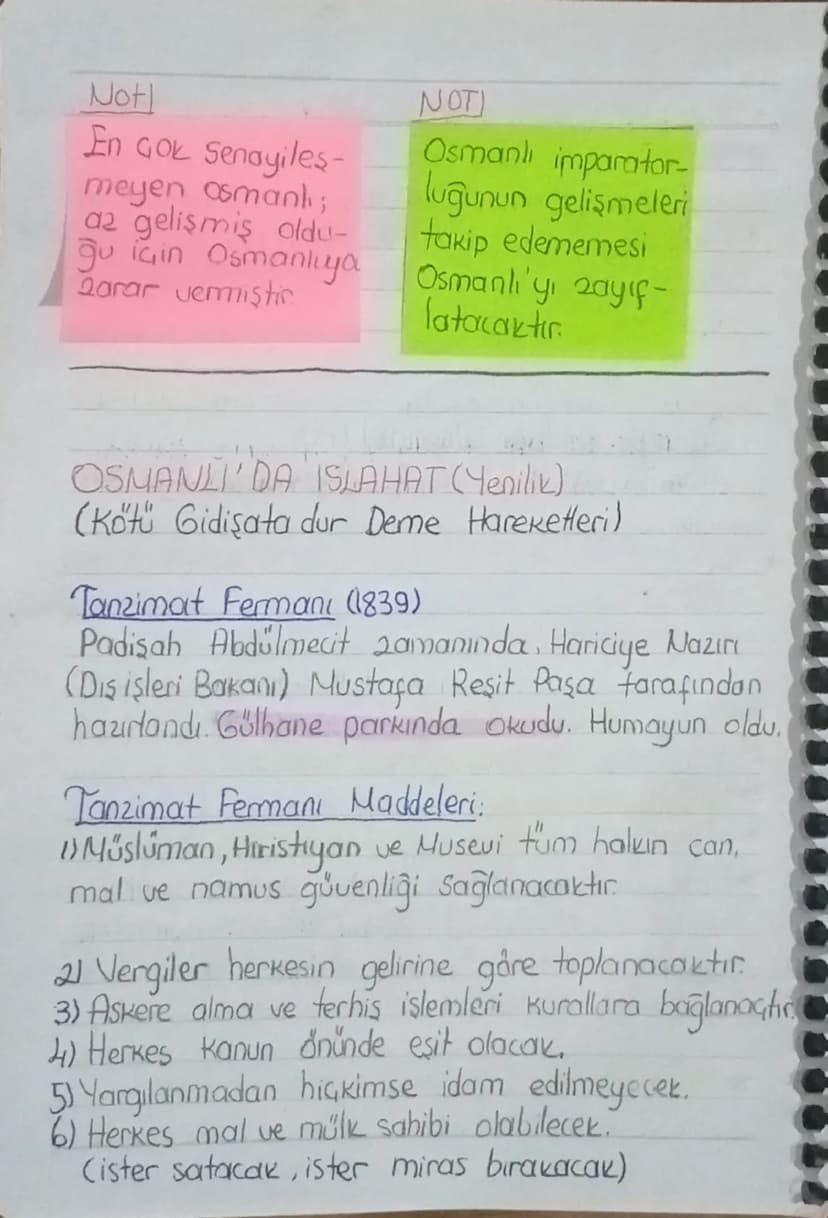 Not!
En çok Senayileş-
meyen osmanlı;
az gelişmiş oldu-
ğu için Osmanlıya
zarar vermiştir
NOT!
Osmanlı imparator-
luğunun gelişmeleri
takip edememesi
Osmanlı'yı zayıf-
latacaktır.
OSMANLI'DA ISLAHAT (Yenilik)
(Kötü Gidişata dur Deme Hareketleri)
Tanzimat Fermanı (1839)
Padişah Abdülmecit zamanında, Hariciye Nazırı
(Dış işleri Bakanı) Mustafa Reşit Paşa tarafından
hazırlandı. Gülhane parkında okudu. Humayun oldu.
Tanzimat Fermanı Maddeleri:
1) Müslüman, Hıristiyan ve Musevi tüm halkın can,
mal ve namus güvenliği sağlanacaktır.
2) Vergiler herkesin gelirine göre toplanacaktır.
3) Askere alma ve terhis işlemleri kurallara bağlanaçtır.
4) Herkes kanun önünde eşit olacak.
5) Yargılanmadan hiçkimse idam edilmeyecek.
6) Herkes mal ve mülk sahibi olabilecek.
(ister satacak, ister miras bırakacak)